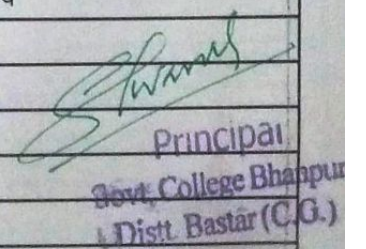 Principal
Govt. College Bhanpur
Distt. Bastar (C.G.)